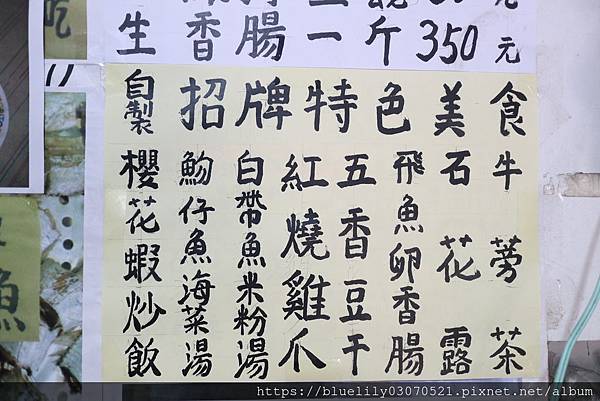 生香腸一斤350元
自製招牌特色美食
櫻花蝦炒飯
魩仔魚海菜湯
白帶魚米粉湯
紅燒雞爪
五香豆干
飛魚卵香腸
石花露
牛蒡茶
吃
魚
https://bluelily03070521.pixnet.net/album